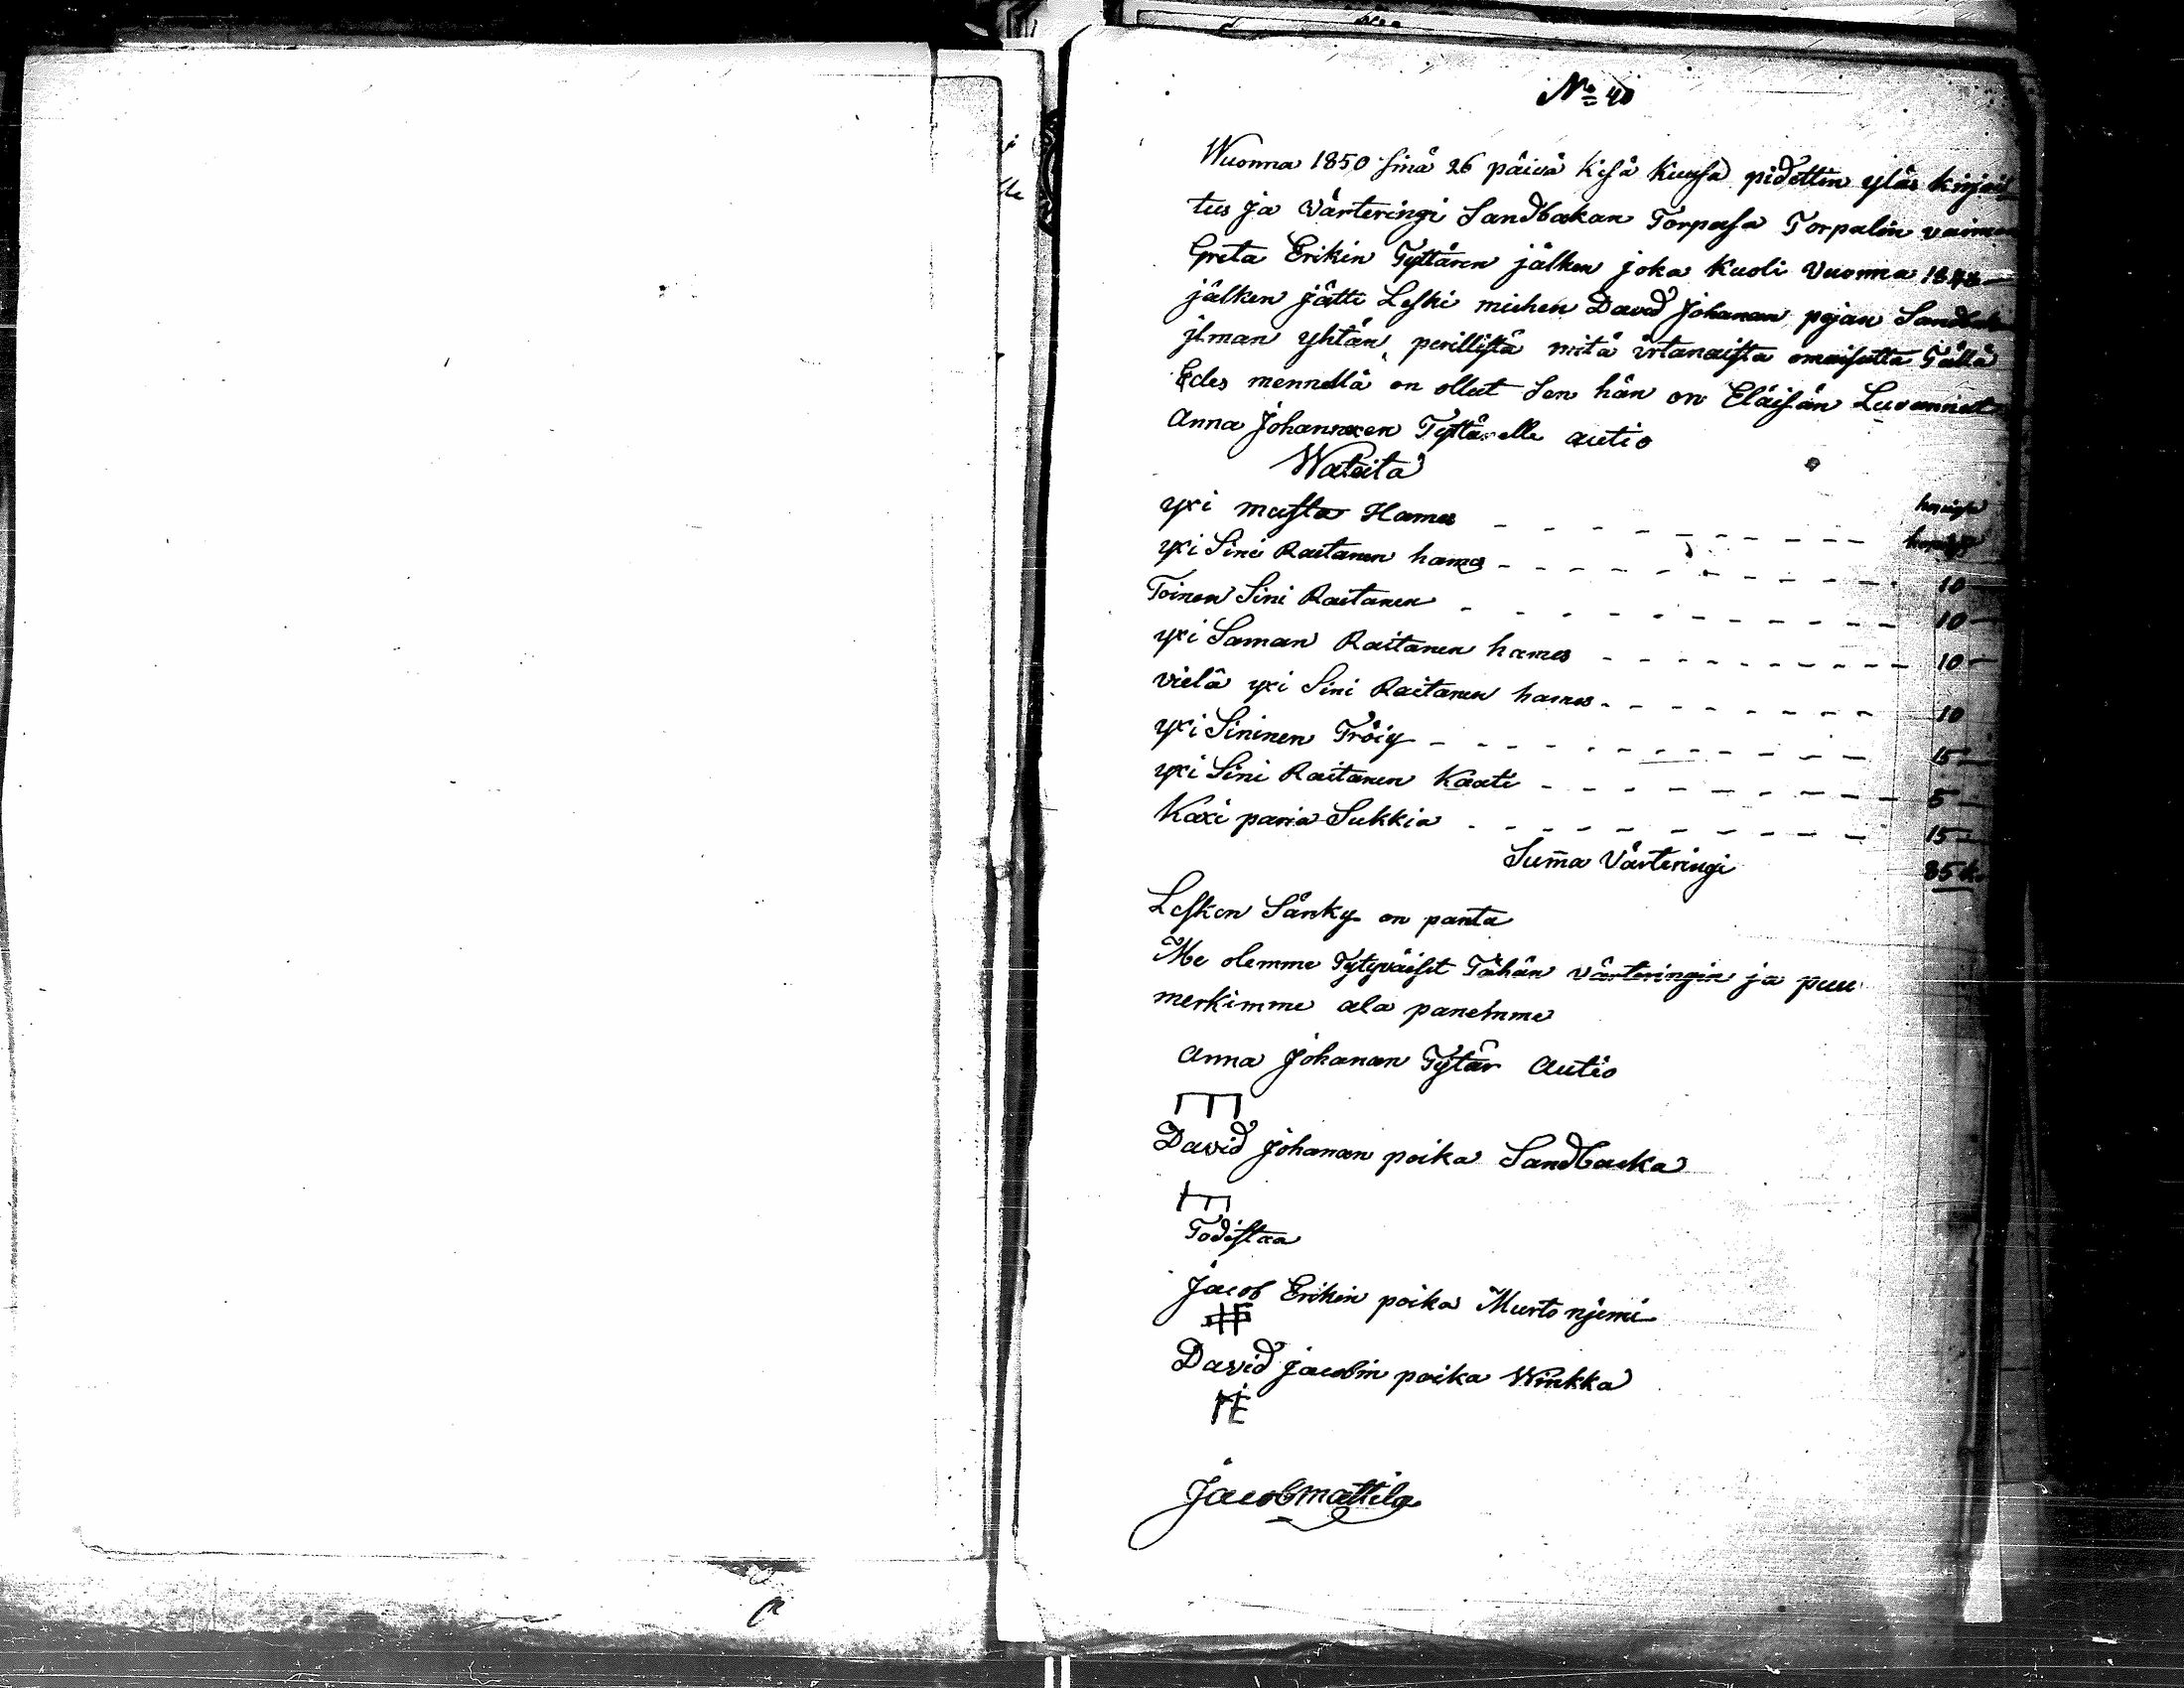 No 40
Wuonna 1850 sinä 26 päivä kesä kuusa pidettin ylös kirjoi
tus ja värteringi Sandbakan Torpasa Torpalin vaimon
Greta Erikin Tyttären jälken joka kuoli vuonna 1848
jälken jätti Leski miehen David Johanan pojan Sandbaka
jlman yhtän perillistä mitä irtanaista omaisutta Tällä
Edes mennellä on ollut sen hän on Eläisän Luvannut
Anna Johannxen Tyttärelle autio
Wateita
yxi musta Hame kopeiga
yxi Sini Raitanen hame 10
Toinen Sini Raitanen 10
yxi Saman Raitanen hames 10
vielä yxi Sini Raitanen hames 10
yxi Sininen Tröiy 15
yxi Sini Raitanen Kaati 5
Kaxi paria Sukkia 15
Suma Värteringi 85 k
Lesken Sänky on panta
Me olemme Tytyväiset Tähän värteringin ja puu
merkimme ala panemme
Anna Johanan Tytär Autio
David Johanan poika Sandbacka
Todistaa
Jacob Erikin poika Murto njemi
David Jacobin poika Winkka
Jacob Mattila